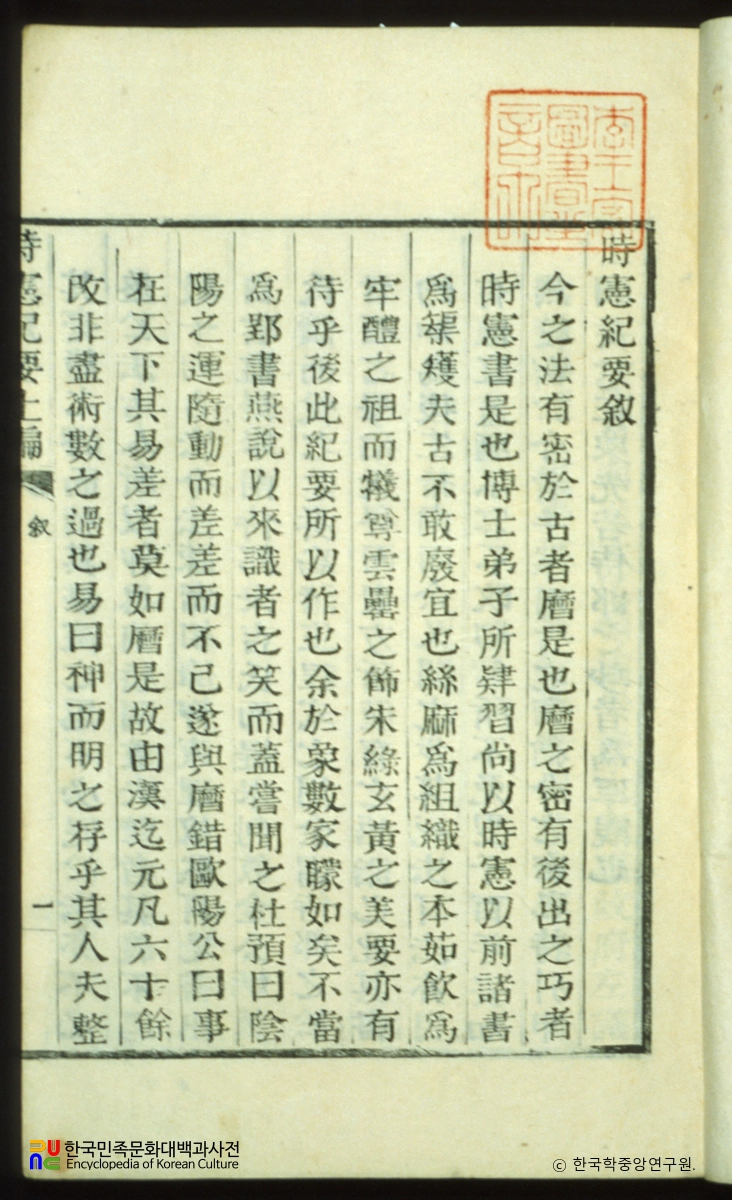 時憲紀要敘
今之法有密於古者曆是也曆之密有後出之巧者
時憲書是也博士弟子所肄習尚以時憲以前諸書
爲榘矱夫古不敢廢宜也絲麻爲組織之本茹飮爲
牢醴之祖而犧尊雲罍之飾朱綠玄黃之美要亦有
待乎後此紀要所以作也余於象數家矇如矣不當
爲郢書燕說以來識者之笑而蓋嘗聞之杜預曰陰
陽之運隨動而差差而不已遂與曆錯歐陽公曰事
在天下其易差者莫如曆是故由漢迄元凡六十餘
改非盡術數之過也易曰神而明之存乎其人夫整
時憲紀要上編
敘
一
李王家
圖書之
章
한국민족문화대백과사전
Encyclopedia of Korean Culture
ⓒ 한국학중앙연구원.